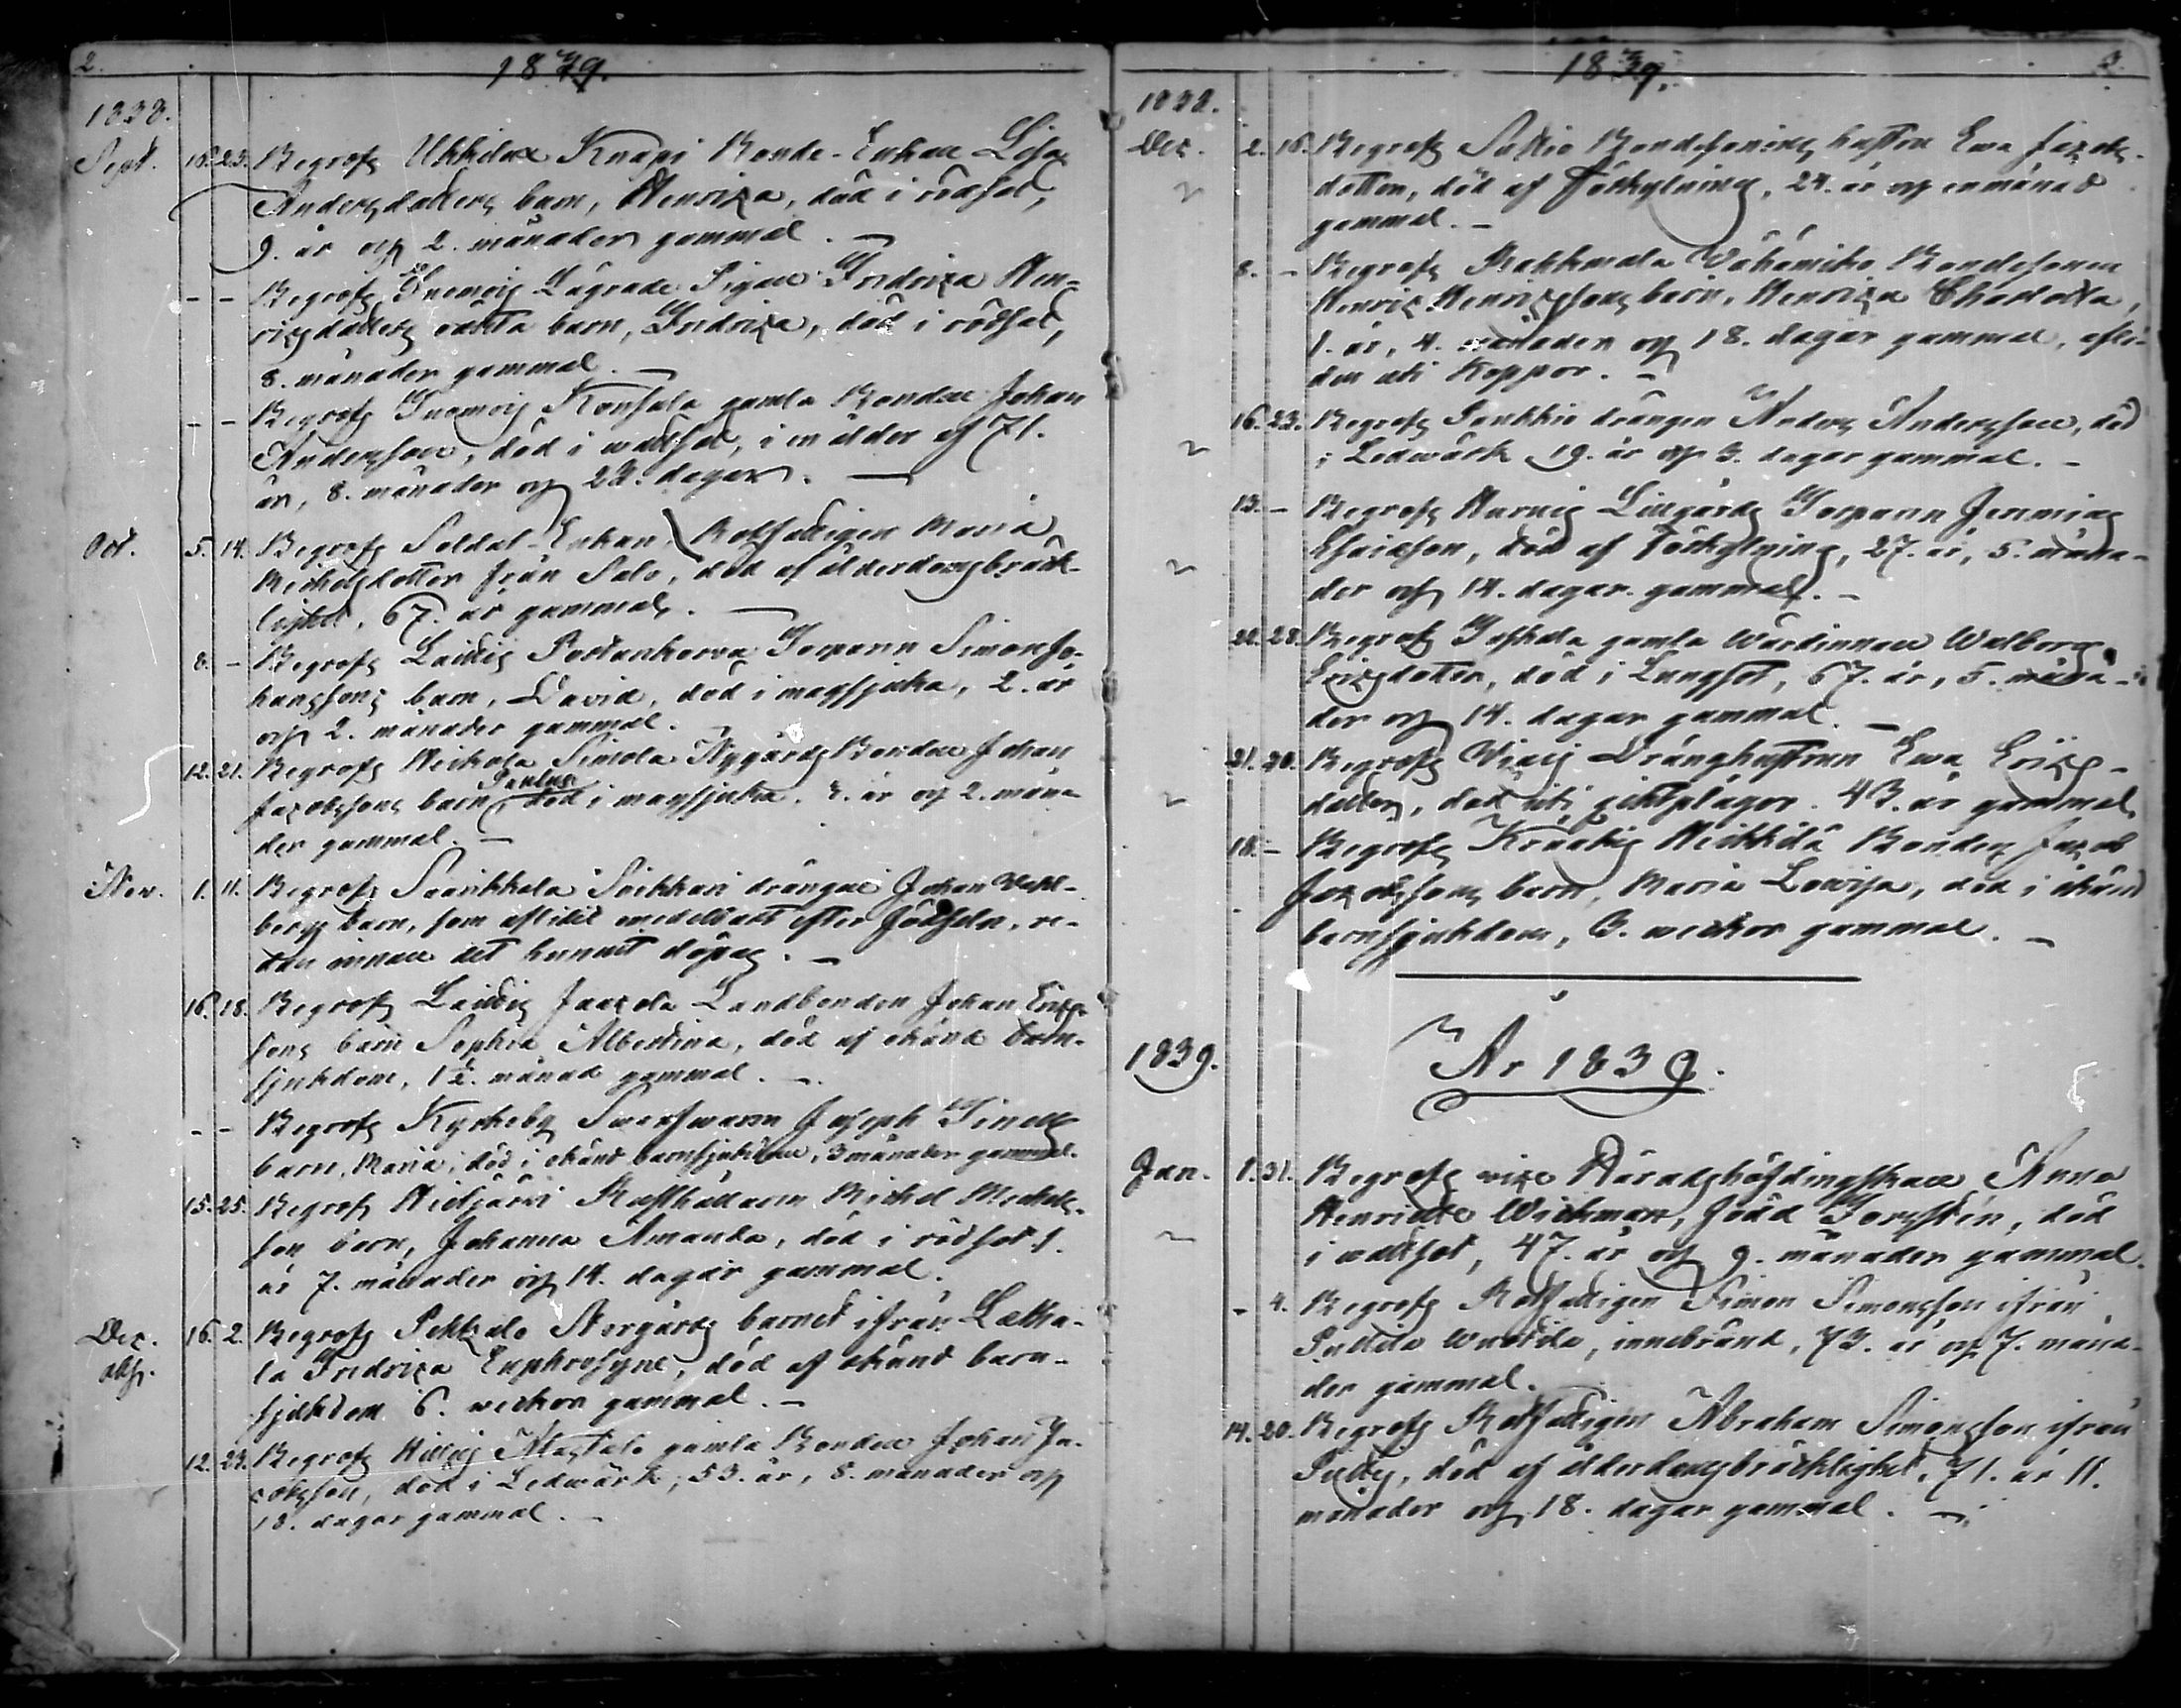 2. 1839.
1838.
Sept. 16. 23. Begrofs Uhkilax Knapi Bonde-Enkan Lisa
Andersdotters barn, Henrica, död i rödsot,
9. år och 2. månader gammal. —
- - Begrofs Inamois Lägrade Pigan Fredrica Hen-
ricsdotters oäkta barn, Fredrica, död i rödsot,
8. månader gammal. —
- - Begrofs Inamois gamla Bonden Johan
Andersson, död i wattsot, i en ålder af 71.
år, 8. månader och 22. dagar. —
Oct. 5. 14. Begrofs Soldat-Enkan, Rotfattigen Maria
Michelsdotter från Salo, död af ålderdomsbräck-
lighet, 67. år gammal. —
8. - Begrofs Laitis Torparen Simon Jo-
hanssons barn, David, död i magsjuka, 2. år
och 2. månader gammal. —
12. 21. Begrofs Simola Nygårds Bonden Johan
Jacobssons barn Paulus död i magsjuka, år och 2. måna-
der gammal. —
Nov. 1. 11. Begrofs drängen Johan
bergs barn, som aflidit omedelbart efter födseln, re-
dan innan det hunnit döpas. —
16. 18. Begrofs Laitis Jaacola Landbonden Johan Erics-
sons barn Sophia Albertina, död af okänd barn-
sjukdom, 1½. månad gammal. —
- - Begrofs Kyrkoby Swarfwaren Joseph
barn, Maria, död i okänd barnsjukdom, 3 månader gammal.
15. 25. Begrofs Hietjärvi Rusthållaren Michel Michels-
son barn, Johanna Amanda, död i rödsot 1.
år 7. månader och 14. dagar gammal.
Dec. 16. 2. Begrofs Norgårds barnet ifrån Latta-
la Fredrica Euphrosyne, död af okänd barn-
sjukdom 6. weckor gammal. —
12. 23. Begrofs gamla Bonden Johan Ja-
cobsson, död i Ledwärk, 53. år, 8. månader och
18. dagar gammal. —
1839. 3.
1838.
Dec. 2. 16. Begrofs Bondesonens hustru Ewa Jacobs-
dotter, död af Förkylning, 24. år och en månad
gammal. —
8. - Begrofs Wähämiko Bondesonen
Henric Henricssons barn, Henrica Charlotta,
1. år, 4. månader och 18. dagar gammal, afli-
den uti Koppor. —
16. 23. Begrofs drängen Anders Andersson, död
i Ledwärk 19. år och 3. dagar gammal. —
13. - Begrofs Lillgårds Torparen
Esaiasson, död af Förkylning, 27. år, 5. måna-
der och 14. dagar gammal. —
22. 28. Begrofs gamla Wärdinnan Walborg
Ericsdotter, död i Lungsot, 67. år, 5. måna-
der och 14. dagar gammal. —
21. 30. Begrofs Dränghustrun Ewa Erics-
dotter, död uti giktplågor. 43. år gammal.
18. - Begrofs Heikkilä Bonden Jacob
Jacobssons barn, Maria Lowisa, död i okänd
barnsjukdom, 3. weckor gammal. —
1839. År 1839.
Jan. 1. 31. Begrofs vice Häradshöfdingskan Anna
Henrica Wichman, född död
i wattsot, 47. år och 9. månader gammal.
- 4. Begrofs Rotfattigen Simon Simonsson ifrån
innebränd, 73. år och 7. måna-
der gammal.
14. 20. Begrofs Rotfattigen Abraham Simonsson ifrån
död af ålderdomsbräcklighet, 71. år 11.
månader och 18. dagar gammal. —